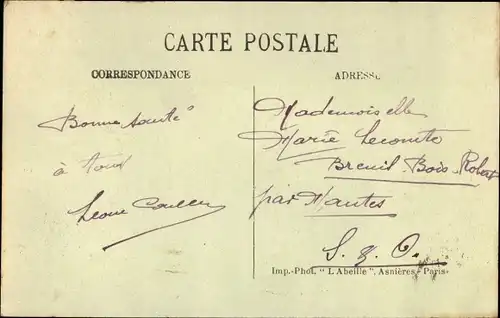 CARTE POSTALE
CORRESPONDANCE
ADRESSE
Bonne santé
à tous
Léone
Mademoiselle
Marie Lecomte
Breuil-Bois-Robert
par Mantes
S. & O.
Imp.-Phot. "L'Abeille". Asnières-Paris